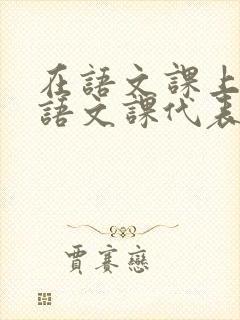 在語文課上
語文課代表
賈賽戀